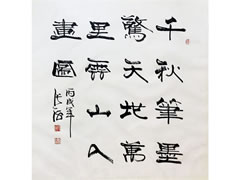 千秋筆墨
驚天地萬
里雲山入
畫圖
丙戌年